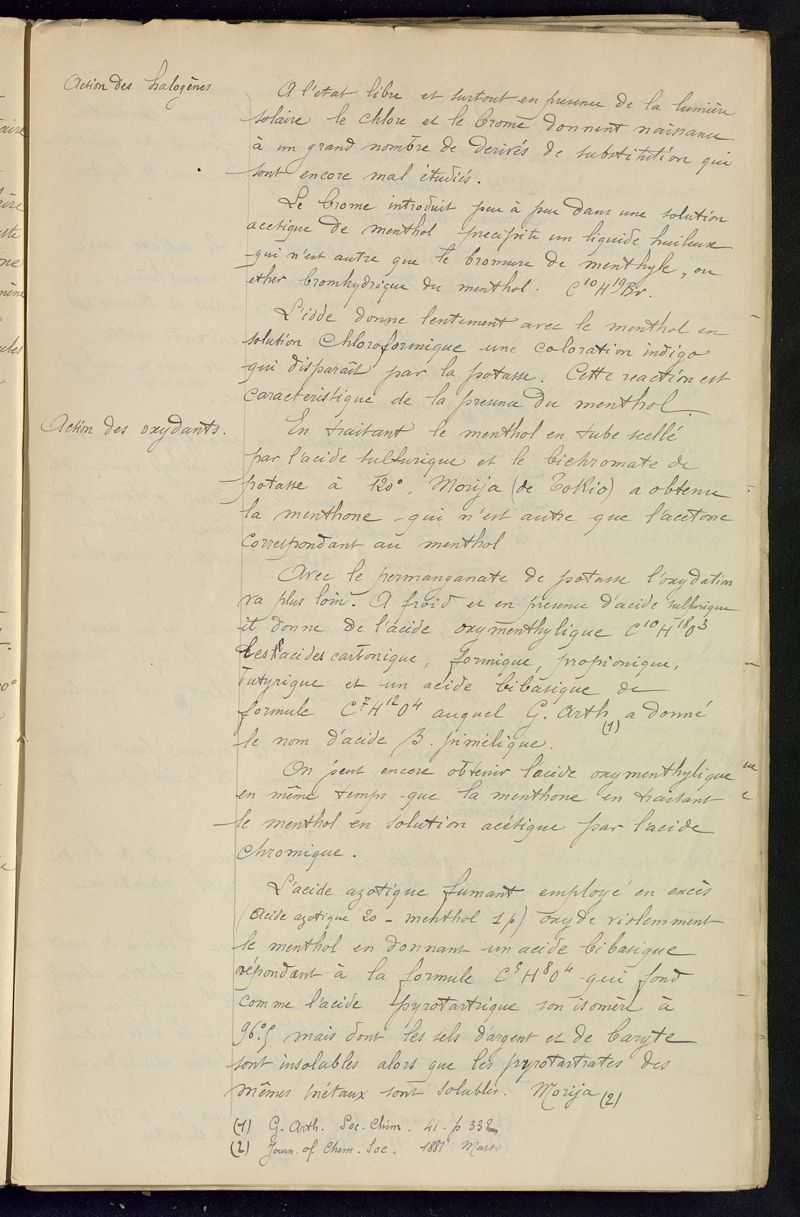 Action des halogènes
A l'etat libre et surtout en presence de la lumière
solaire le chlore et le brome donnent naissance
à un grand nombre de derivés de substitution qui
sont encore mal étudiés.
Le brome introduit peu à peu dans une solution
acetique de menthol precipite un liquide huileux
qui n'est autre que le bromure de menthyle, ou
ether bromhydrique du menthol. C¹⁰H¹⁹Br.
L'iode donne lentement avec le menthol en
solution chloroformique une coloration indigo
qui disparaît par la potasse. Cette reaction est
caracteristique de la presence du menthol.
Action des oxydants.
En traitant le menthol en tube scellé
par l'acide sulfurique et le bichromate de
potasse à 120°, Morija (de Tokio) a obtenu
la menthone qui n'est autre que l'acetone
correspondant au menthol
Avec le permanganate de potasse l'oxydation
va plus loin. A froid et en presence d'acide sulfurique
il donne de l'acide oxymenthylique C¹⁰H¹⁸O³
Les acides carbonique, formique, propionique,
butyrique et un acide bibasique de
formule C⁷H¹²O⁴ auquel G. Arth (1) a donné
le nom d'acide β. pimélique.
On peut encore obtenir l'acide oxymenthylique
en même temps que la menthone en traitant
le menthol en solution acétique par l'acide
chromique.
L'acide azotique fumant employé en excès
(Acide azotique 20 - menthol 1 p) oxyde violemment
le menthol en donnant un acide bibasique
répondant à la formule C⁵H⁸O⁴ qui fond
comme l'acide pyrotartrique son isomère à
96°.5 mais dont les sels d'argent et de baryte
sont insolubles alors que les pyrotartrates des
mêmes métaux sont solubles. Morija (2)
(1) G. Arth. Soc. Chim. 41. p 332
(2) Journ. of Chem. Soc. 1881. Mars.